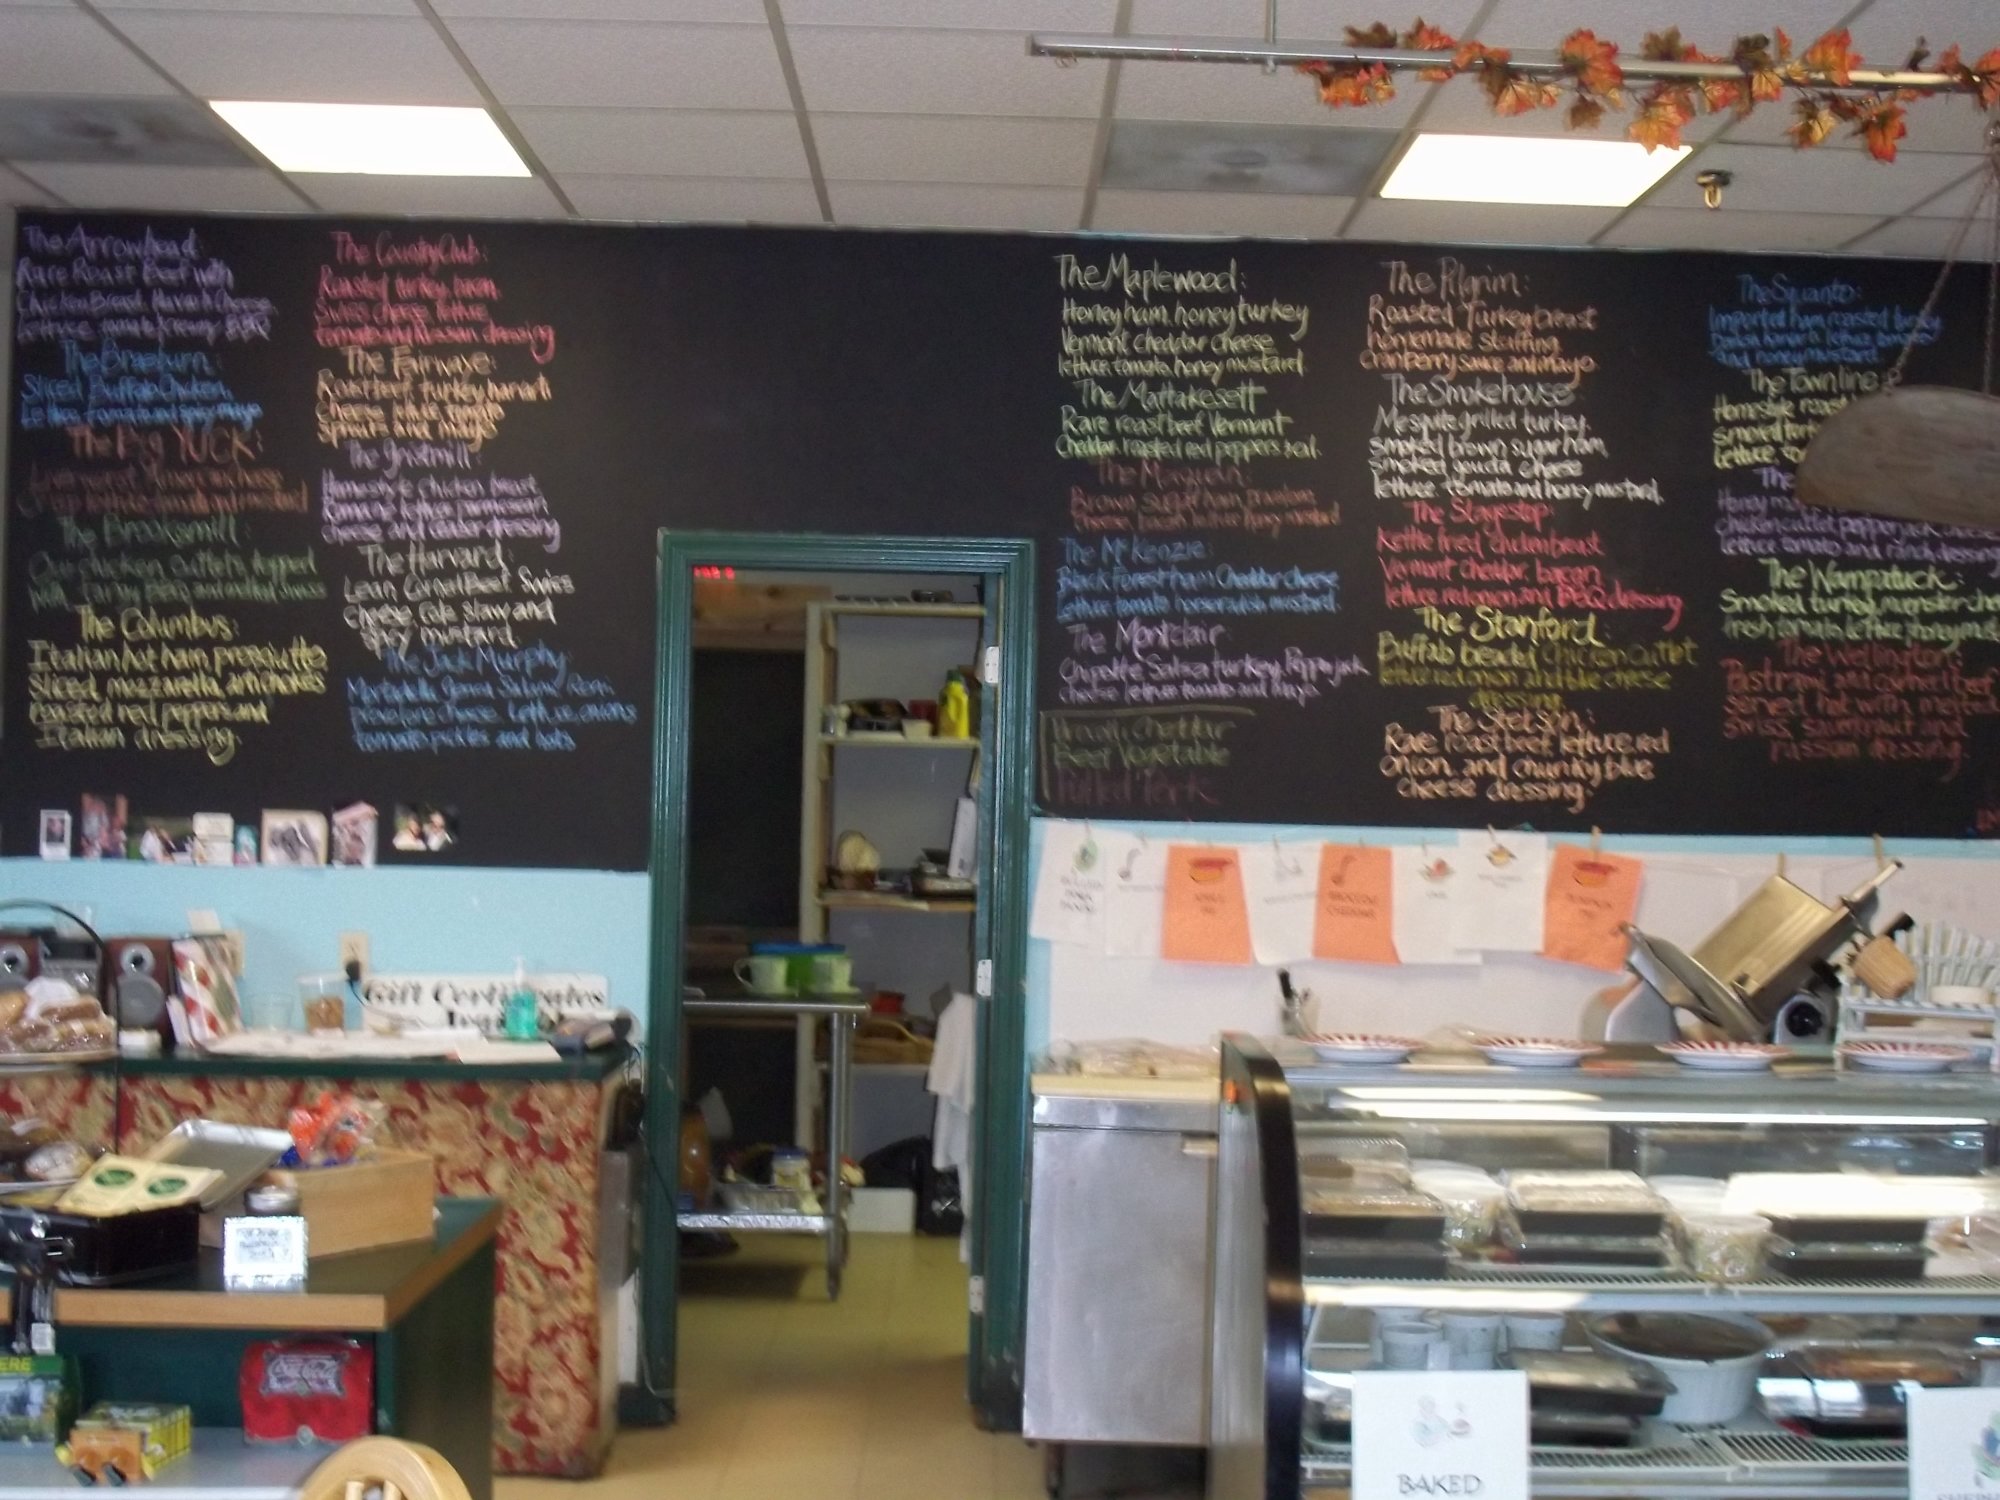 The Arrowhead:
Rare Roast Beef with
Chicken Breast, Havarti Cheese
Lettuce tomato creamy BBQ
The Braeburn:
Sliced Buffalo Chicken,
Lettuce tomato and spicy mayo
The Big YUCK:
Liverwurst
The Brooksmill:
Our chicken cutlets topped
with and melted swiss
The Columbus:
Italian hot ham, prosciutto,
sliced mozzarella, artichokes
roasted red peppers and
Italian dressing.
The Country Club:
Roasted turkey, bacon,
Swiss cheese, lettuce
tomato and Russian dressing
The Fairwaye:
Roast beef, turkey, havarti
cheese
sprouts and mayo
The Gristmill:
Homestyle chicken breast,
Romaine lettuce parmesan
cheese and caesar dressing
The Harvard:
Lean Corned Beef Swiss
cheese cole slaw and
spicy mustard.
The Jack Murphy:
Mortadella, Genoa Salami
provolone cheese, Lettuce, onions
tomato, pickles and hots
The Maplewood:
Honey ham, honey turkey
Vermont cheddar cheese
lettuce, tomato, honey mustard
The Mattakesett
Rare roast beef Vermont
cheddar, roasted red peppers
The Maquan:
Brown sugar ham, provolone
cheese, bacon, lettuce honey mustard
The McKenzie:
Black Forest ham Cheddar cheese
lettuce tomato horseradish mustard.
The Montclair:
Chipotle Salsa turkey, Pepper jack
cheese lettuce tomato and Mayo
Broccoli Cheddar
Beef Vegetable
Pulled Pork
The Pilgrim:
Roasted Turkey breast
homemade stuffing
cranberry sauce and mayo
The Smokehouse:
Mesquite grilled turkey,
smoked brown sugar ham,
smoked gouda cheese
lettuce tomato and honey mustard.
The Stagestop:
Kettle fried chicken breast
Vermont cheddar, bacon,
lettuce, red onion and BBQ dressing
The Stanford:
Buffalo breaded chicken cutlet
lettuce red onion and blue cheese
dressing
The Stetson:
Rare roast beef, lettuce, red
onion, and chunky blue
cheese dressing.
The Squanto:
Imported ham, roasted turkey
and honey mustard
The Townline
Homestyle roast
smoked
lettuce,
The
Honey
chicken cutlet, pepper jack
lettuce tomato and ranch dressing
The Wampatuck:
Smoked turkey, muenster
fresh tomato, lettuce, honey
The Wellington:
Pastrami and corned beef
served hot with melted
swiss, sauerkraut and
russian dressing.
Gift Certificates
BROCCOLI
CHEDDAR
BAKED